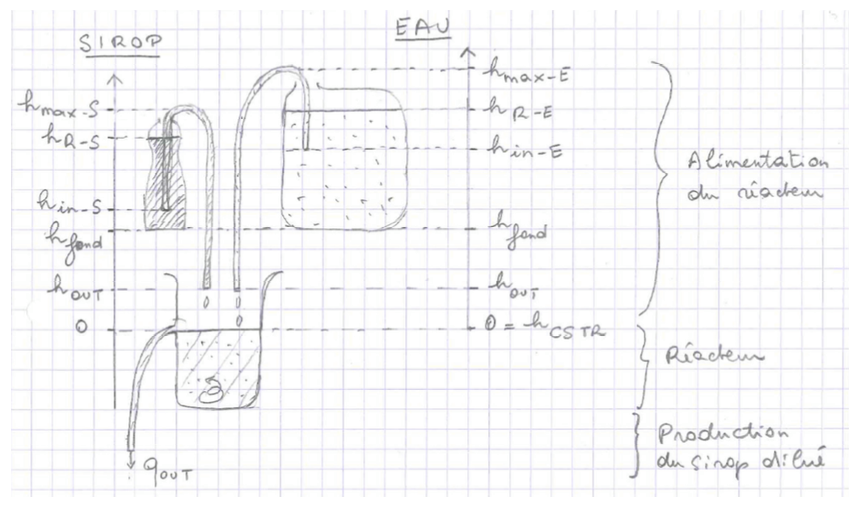 SIROP
EAU
hmax-S
hR-S
hin-S
hfond
hOUT
0
qOUT
hmax-E
hR-E
hin-E
hfond
hOUT
0 = hCSTR
Alimentation
du réacteur
Réacteur
Production
du sirop dilué